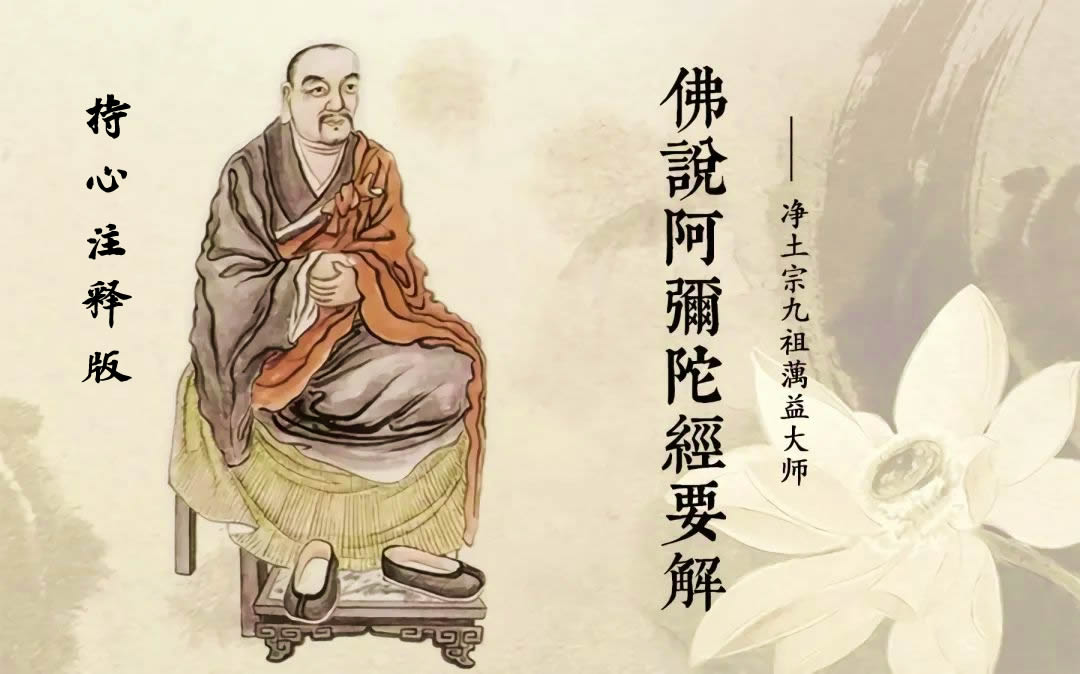 佛說阿彌陀經要解
——净土宗九祖蕅益大师
持心注释版